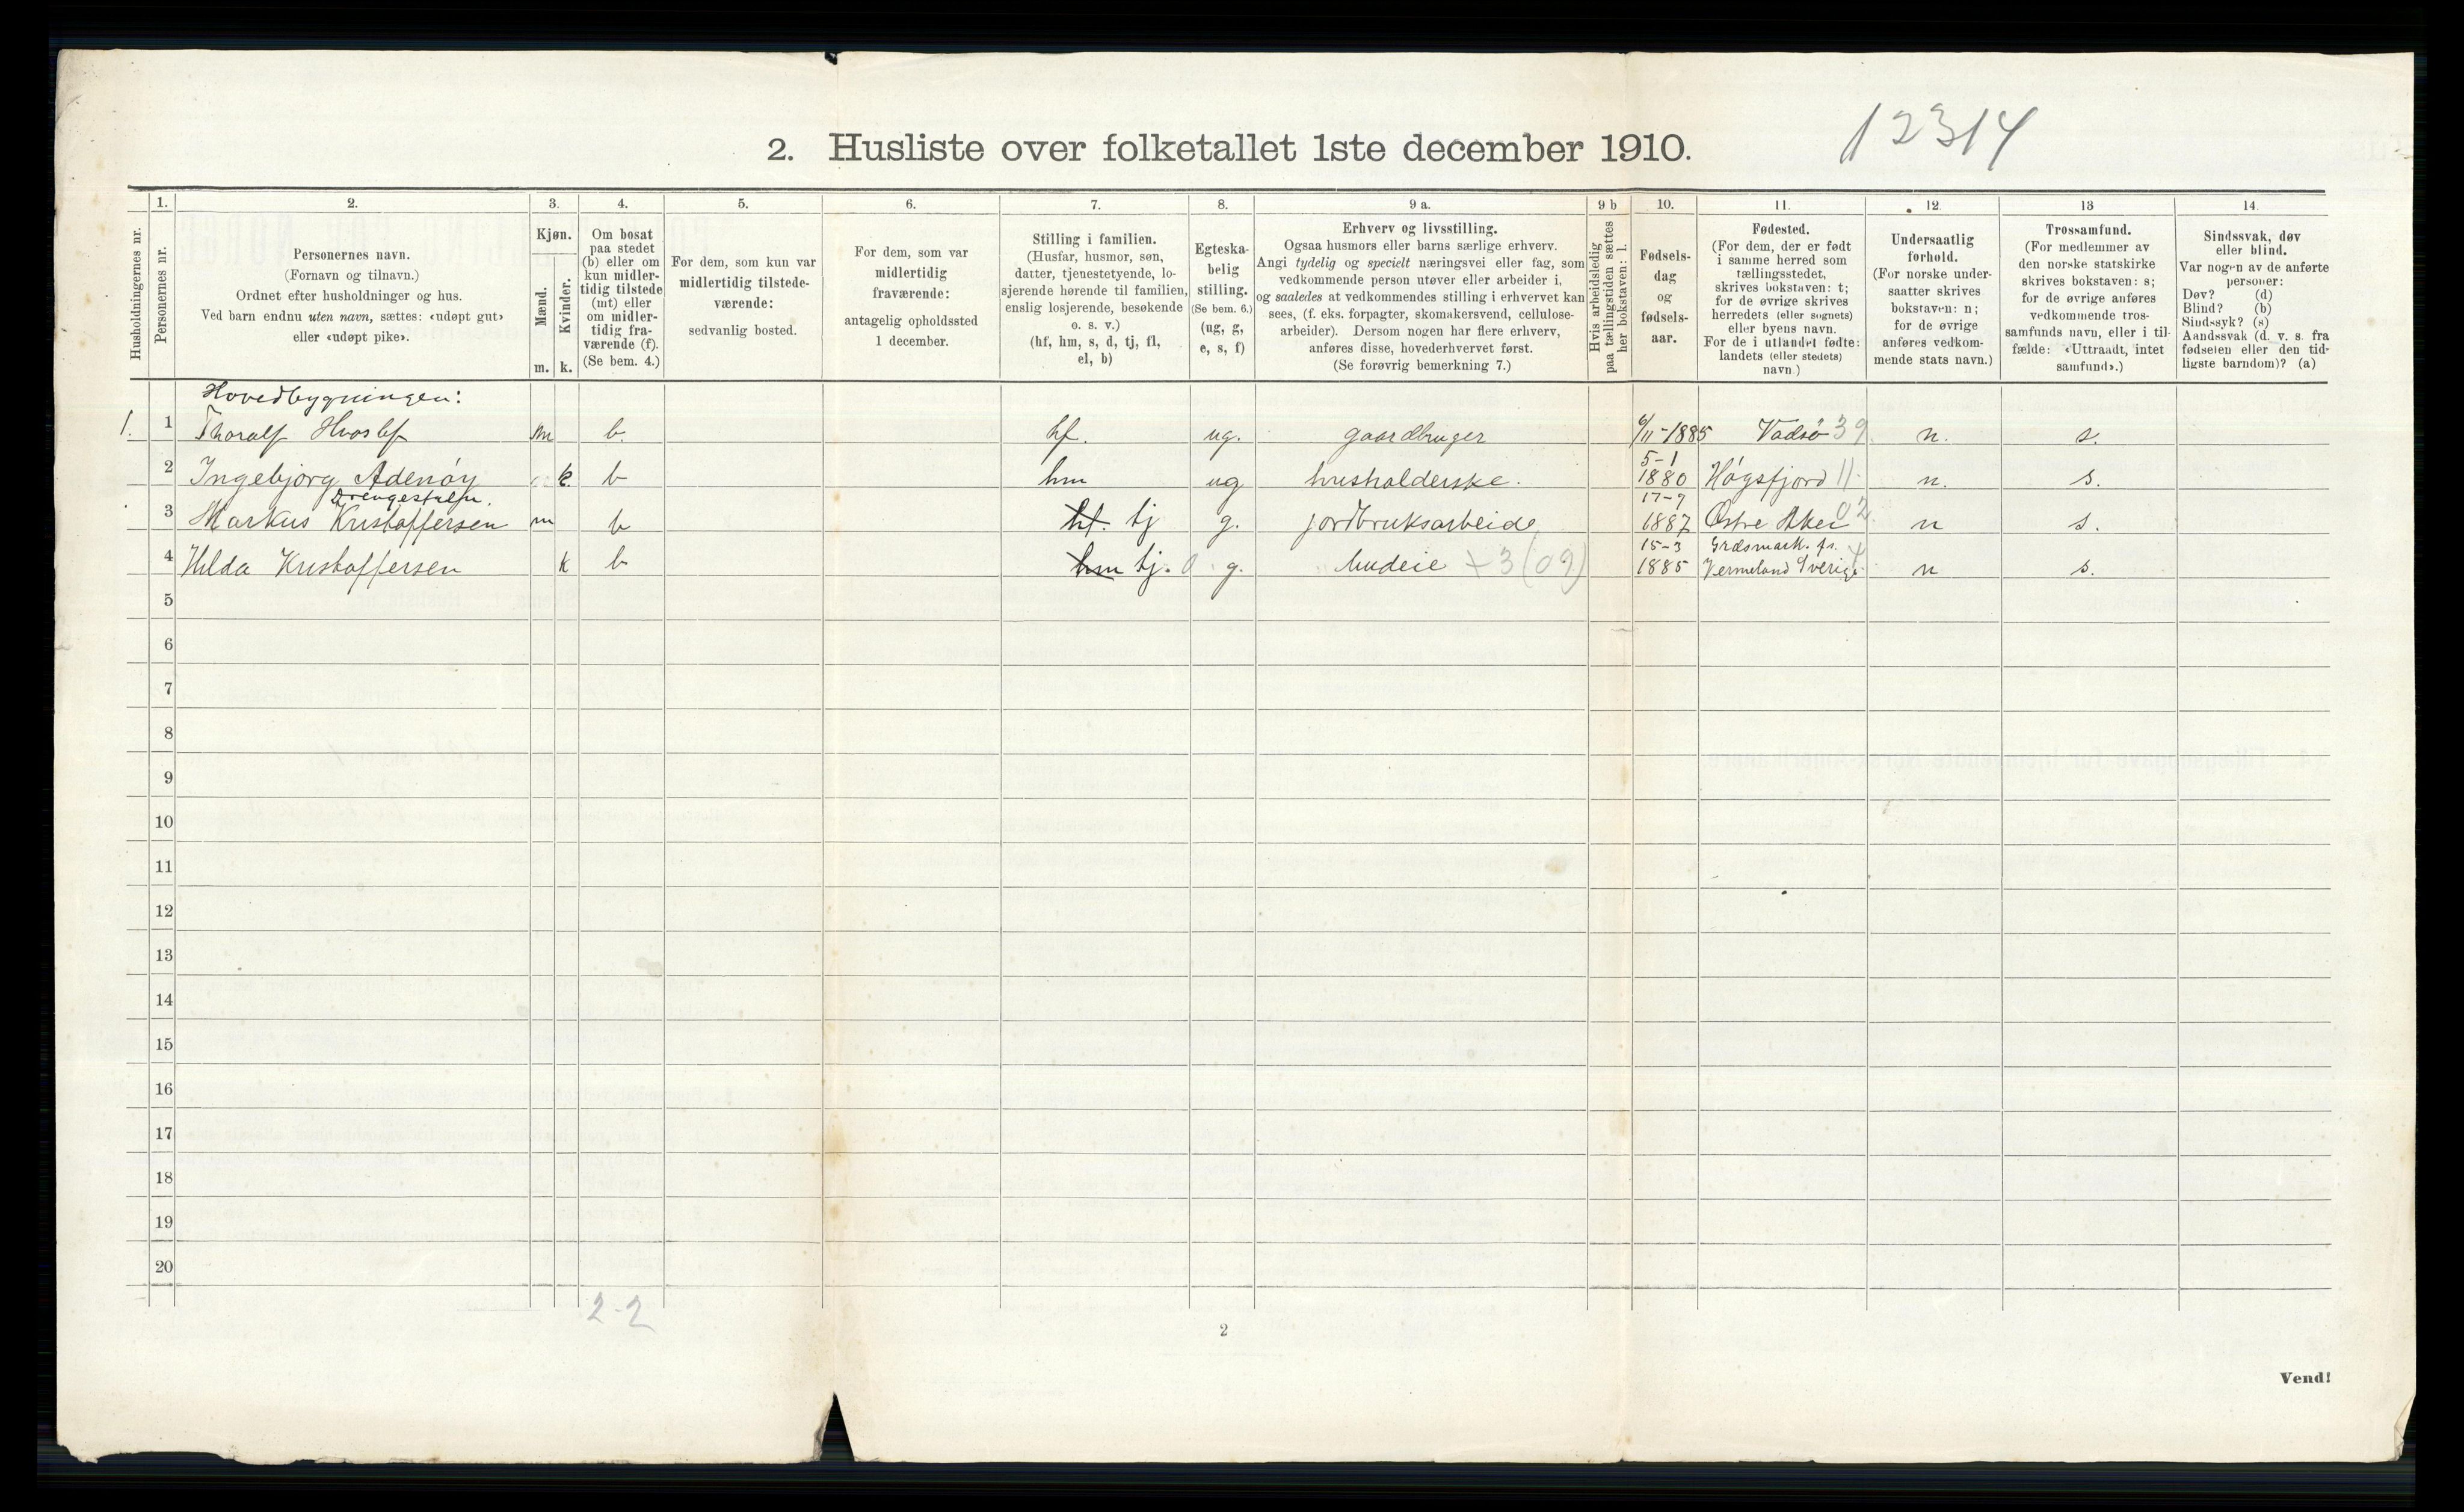 2. Husliste over folketallet 1ste december 1910.
12314
Husholdningernes nr.
1.
Personernes nr.
2.
Personernes navn.
(Fornavn og tilnavn.)
Ordnet efter husholdninger og hus.
Ved barn endnu uten navn, sættes: «udøpt gut»
eller «udøpt pike».
3.
Kjøn.
Mænd.
Kvinder.
m. k.
4.
Om bosat
paa stedet
(b) eller om
kun midler-
tidig tilstede
(mt) eller
om midler-
tidig fra-
værende (f).
(Se bem. 4.)
5.
For dem, som kun var
midlertidig tilstede-
værende:
sedvanlig bosted.
6.
For dem, som var
midlertidig
fraværende:
antagelig opholdssted
1 december.
7.
Stilling i familien.
(Husfar, husmor, søn,
datter, tjenestetyende, lo-
sjerende hørende til familien,
enslig losjerende, besøkende
o. s. v.)
(hf, hm, s, d, tj, fl,
el, b)
8.
Egteska-
belig
stilling.
(Se bem. 6.)
(ug, g,
e, s, f)
9 a.
Erhverv og livsstilling.
Ogsaa husmors eller barns særlige erhverv.
Angi tydelig og specielt næringsvei eller fag, som
vedkommende person utøver eller arbeider i,
og saaledes at vedkommendes stilling i erhvervet kan
sees, (f. eks. forpagter, skomakersvend, cellulose-
arbeider). Dersom nogen har flere erhverv,
anføres disse, hovederhvervet først.
(Se forøvrig bemerkning 7.)
9 b
Hvis arbeidsledig
paa tællingstiden sættes
her bokstaven: l.
10.
Fødsels-
dag
og
fødsels-
aar.
11.
Fødested.
(For dem, der er født
i samme herred som
tællingsstedet,
skrives bokstaven: t;
for de øvrige skrives
herredets (eller sognets)
eller byens navn.
For de i utlandet fødte:
landets (eller stedets)
navn.)
12.
Undersaatlig
forhold.
(For norske under-
saatter skrives
bokstaven: n;
for de øvrige
anføres vedkom-
mende stats navn.)
13
Trossamfund.
(For medlemmer av
den norske statskirke
skrives bokstaven: s;
for de øvrige anføres
vedkommende tros-
samfunds navn, eller i til-
fælde: «Uttraadt, intet
samfund».)
14.
Sindssvak, døv
eller blind.
Var nogen av de anførte
personer:
Døv? (d)
Blind? (b)
Sindssyk? (s)
Aandssvak (d. v. s. fra
fødselen eller den tid-
ligste barndom)? (a)
Hovedbygningen:
1. 1 Thoralf Hvoslef m b. hf. ug. gaardbruger 6/11-1885 Vadsö 39 n. s.
5-1
2 Ingebjörg Adenöy k. b hm ug husholderske. 1880 Høgsfjord 11 n. s.
Drengestuen. 17-9
3 Markus Kristoffersen m b hf. tj g. jordbruksarbeide 1887 Østre Aker 02 n s.
15-3 Græsmark. ps.
4 Hilda Kristoffersen k b hm tj. 0 g. budeie +3 (09) 1885 Vermeland Sverige n s.
5
6
7
8
9
10
11
12
13
14
15
16
17
18
19
20
2-2
2
Vend!